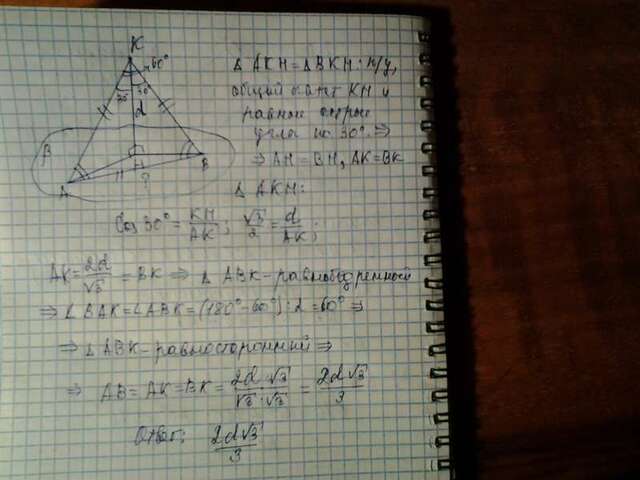 K
60°
30° 30°
d
β
A H ? B
Δ AKH = Δ BKH: п/у,
общий катет KH и
равные острые
углы по 30° ⇒
⇒ AH = BH, AK = BK
Δ AKH:
Cos 30° = KH/AK; √3/2 = d/AK;
AK = 2d/√3 = BK ⇒ Δ ABK - равнобедренный
⇒ ∠BAK = ∠ABK = (180° - 60°) : 2 = 60° ⇒
⇒ Δ ABK - равносторонний ⇒
⇒ AB = AK = BK = 2d·√3/√3·√3 = 2d√3/3
Ответ: 2d√3/3